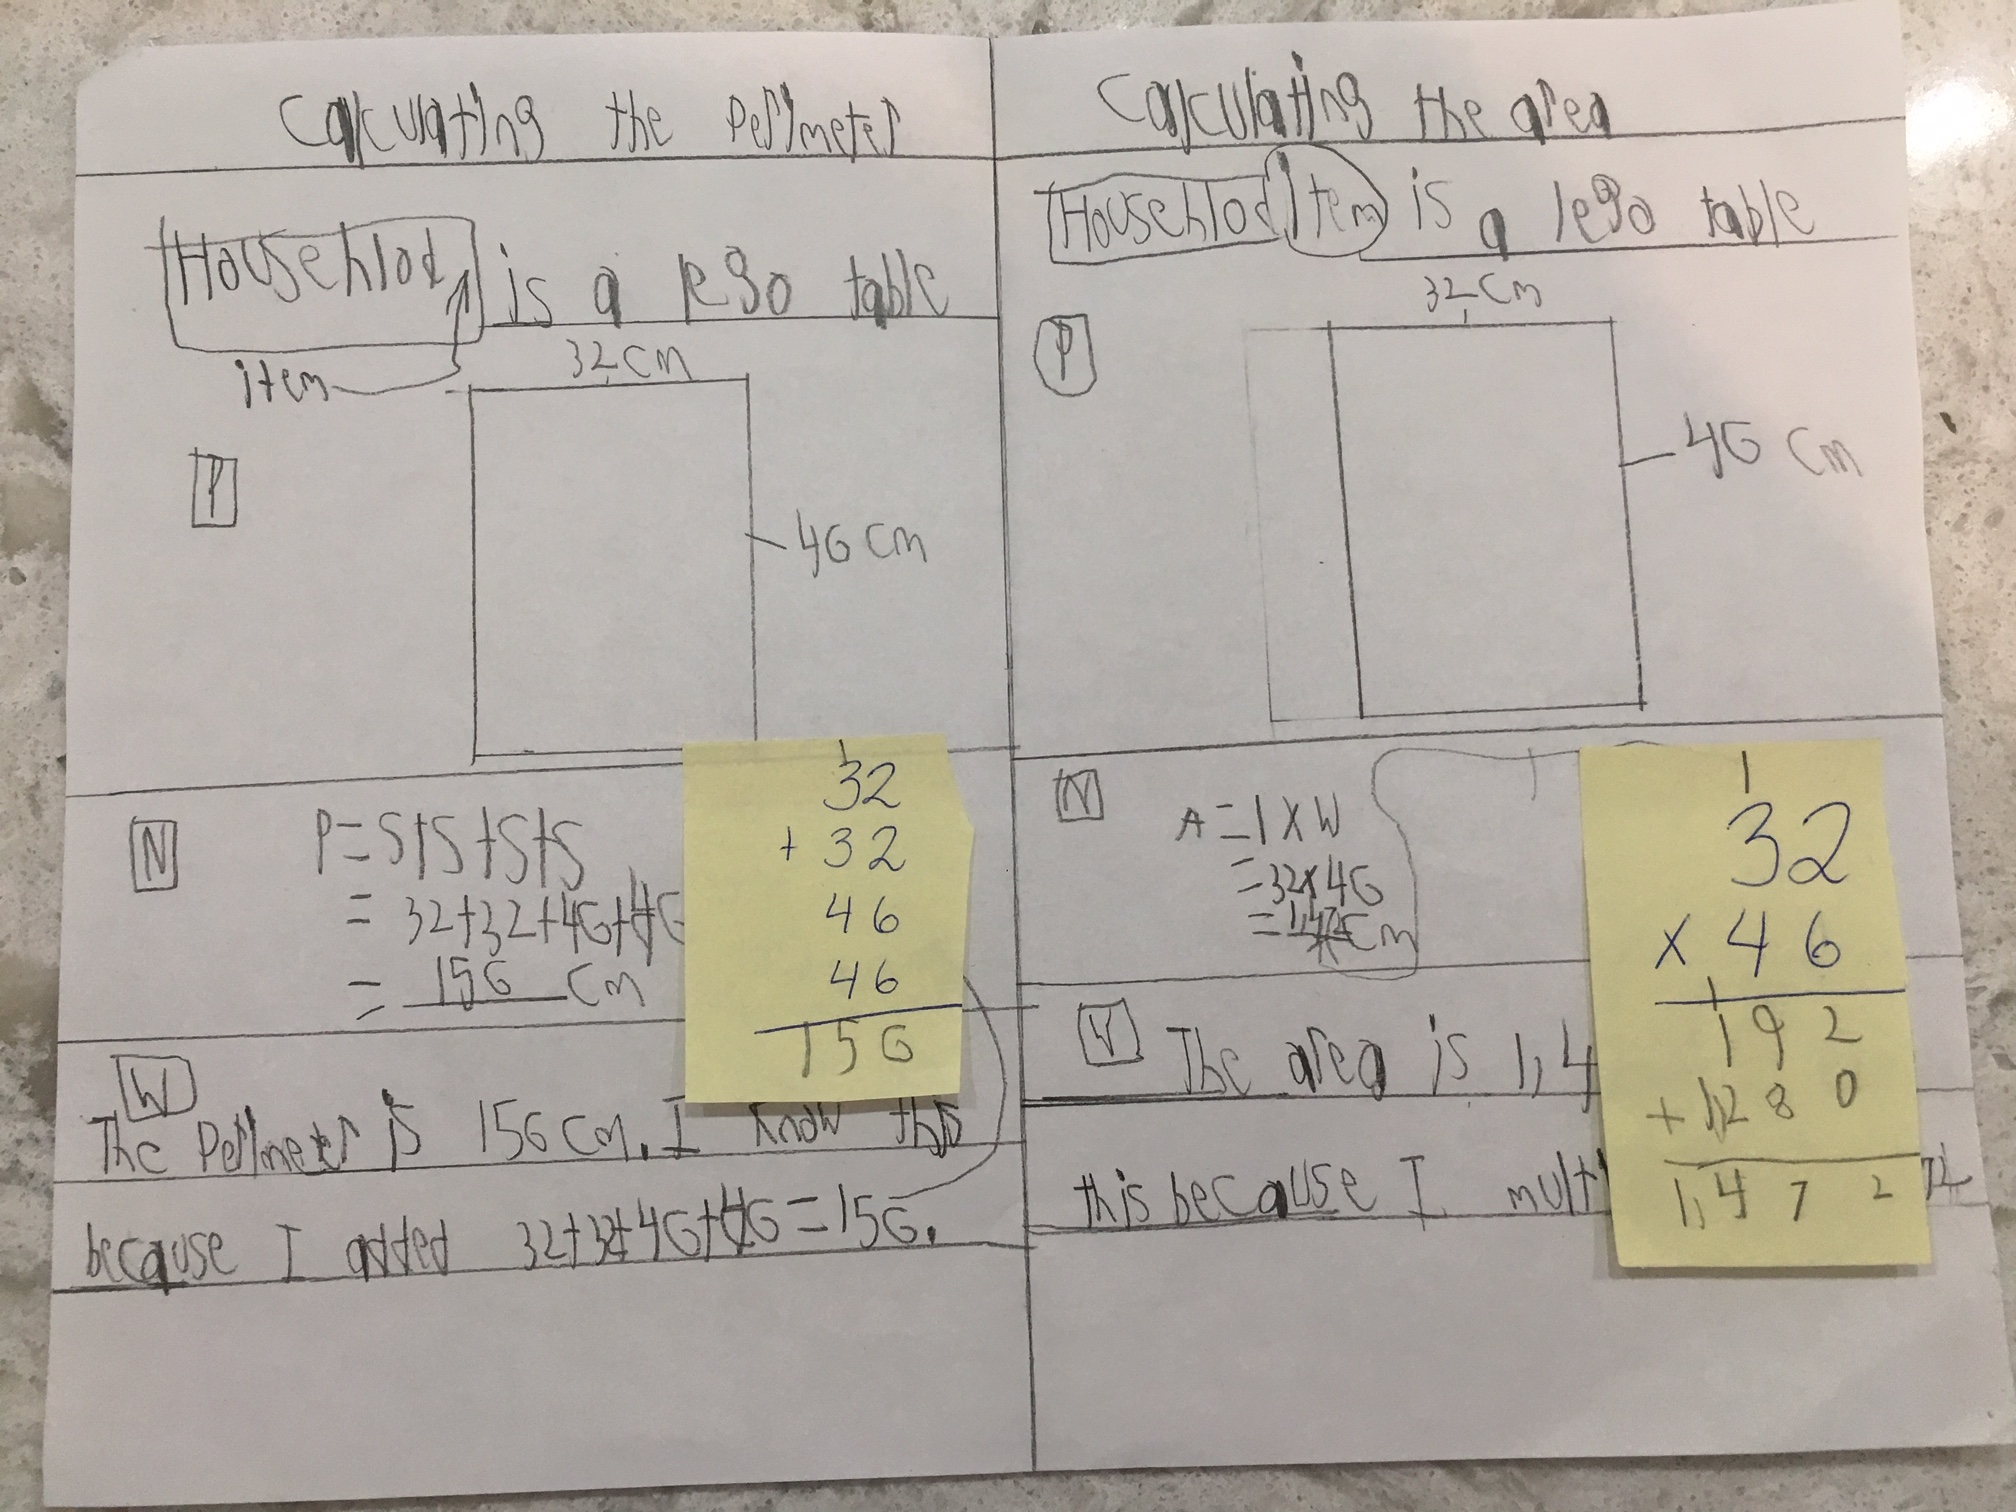 Calculating the Perimeter
Househlod is a lego table
item
32 cm
P
46 cm
N
P=S+S+S+S
= 32+32+46+46
= 156 cm
32
+ 32
46
46
156
W
The Perimeter is 156 cm. I know this
because I added 32+32+46+46=156.
Calculating the area
Househlod item is a lego table
32 cm
P
46 cm
N
A=l x W
=32x46
cm
1
32
x 46
1
192
+ 1,280
1,472
The area is 1,4
this because I mult